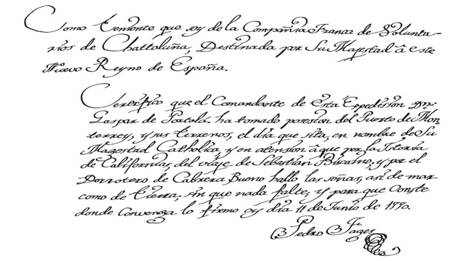 Como temente que soy de la Compañia Franca de Volunta-
rios de Chattoluña, Destinada por Su Magestad â este
Nuevo Reyno de España.
Certifico que el Comandante de esta Expedision Dn
Gaspar de Portola ha tomado posesion del Puerto de Mon
terrey, y sus terrenos, el dia que sita, en nombre de Su
Magestad Catholica, y en atension â que por la Istoria
de Californias, del viaje de Sebastian Biscaino, y por el
Derrotero de Cabrera Bueno hallo las señas, asi de mar
como de tierra, sin que nada falte, y para que Conste
donde Convenga lo firmo oy dia 11 de Junio de 1770.
Pedro Fages